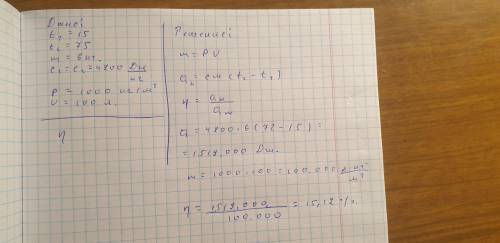 Дано:
t₁ = 15
t₂ = 75
m = 6 кг.
c₁ = c₂ = 4200 Дж/кг
P = 1000 кг/м³
V = 100 л.
η
Решение:
m = PV
Q₂ = cm(t₂ - t₁)
η =
Q = 4200·6(75 - 15) =
= 1512,000 Дж.
m = 1000·100 = 100.000
η = 1512,000 / 100.000 = 15,12 %.